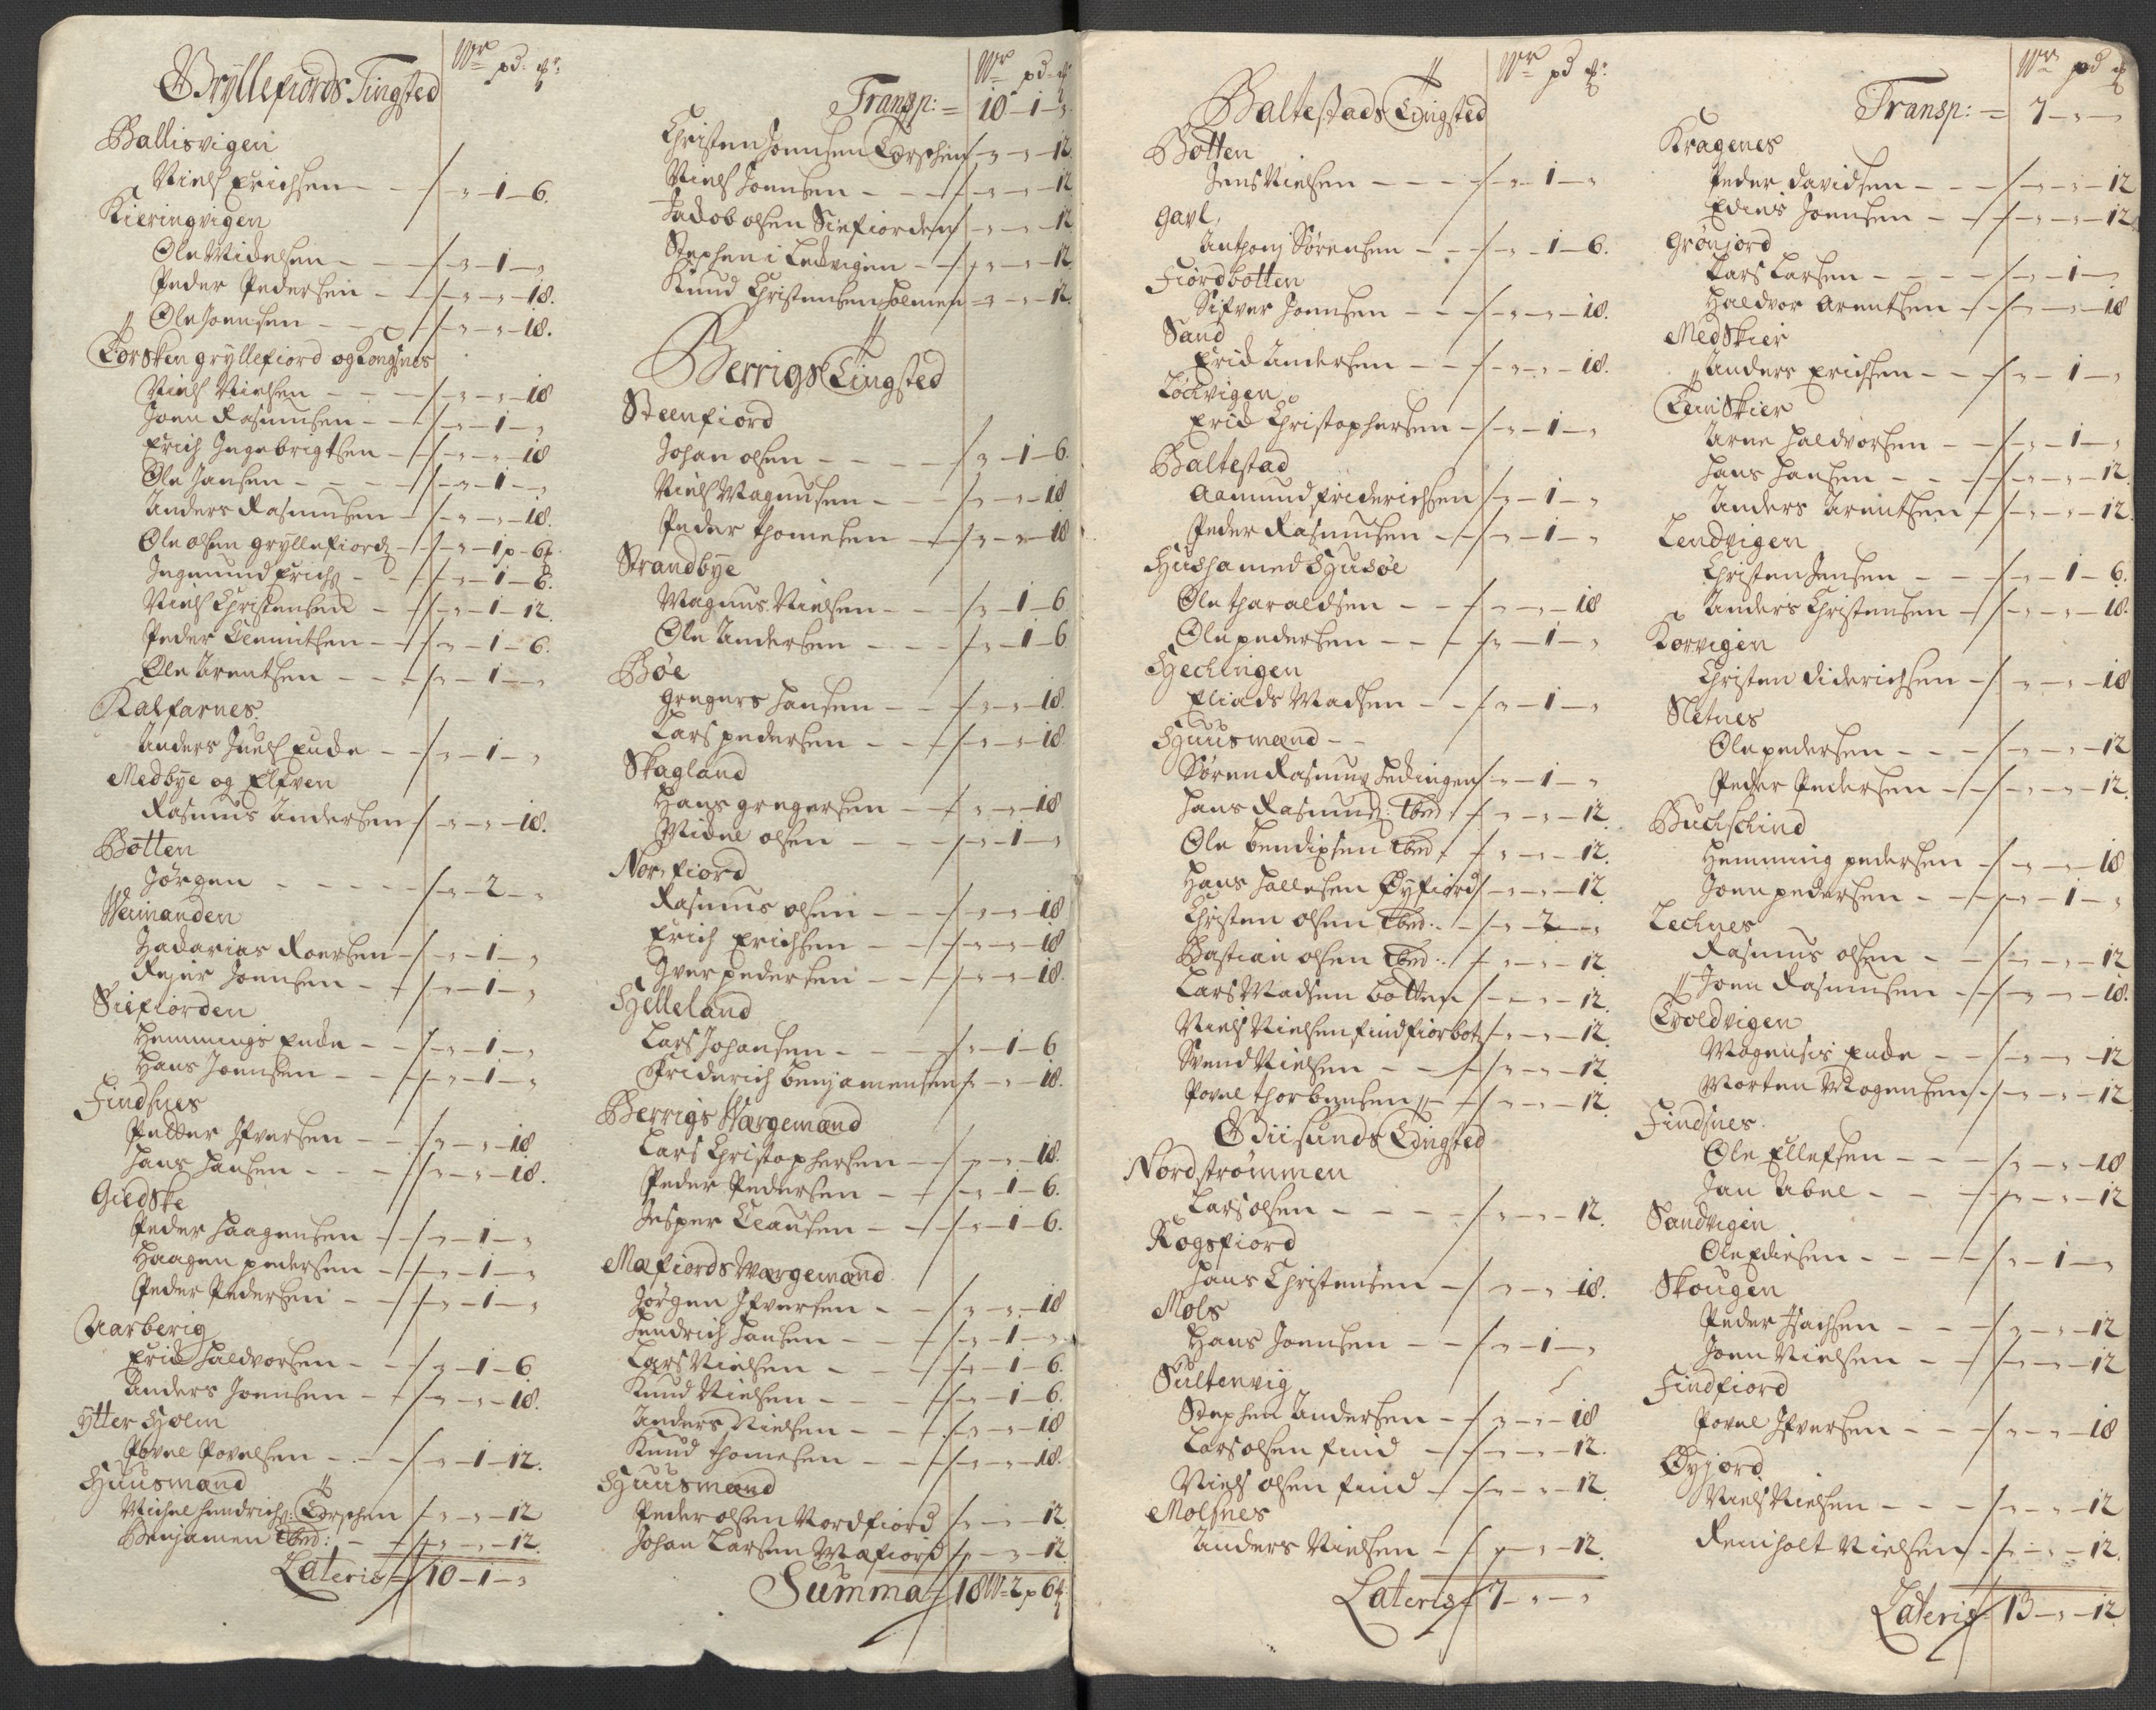 Gryllefiords Tingsted Wr pd. 
Ballisvigen
Niels Erichsen - - „ - 1 - 6.
Kieringvigen
Ole Michelsen - - „ - 1 - „
Peder Pedersen - - „ - „ - 18.
Ole Joensen - - „ - „ - 18.
Torsken gryllefiord og Kongsnes
Niels Nielsen - - „ - „ - 18
Joen Rasmusen - - „ - 1 - „
Erich Ingebrigtsen - „ - „ - 18
Ole Jansen - - „ - 1 - „
Anders Rasmusen - „ - „ - 18.
Ole olsen gryllefiord - „ - 1 p - 6
Ingmund Erichs - - „ - 1 - 6.
Niels Christensen - - „ - 1 - 12.
Peder Clemitsen - - „ - 1 - 6.
Ole Arentsen - - - „ - 1 - „
Kalfarnes.
Anders Juels Encke - - „ - 1 - „
Medbye og Elfven
Rasmus Andersen „ - „ - 18.
Botten
Jørgen - - - - „ - 2 - „
Weimanden
Zacharias Roersen - „ - 1 - „
Rejer Joensen - - „ - 1 - „
Siefiorden
Hemmings Encke - - „ - 1 - „
Hans Joensen - - „ - 1 - „
Findsnes
Petter Ifversen - - „ - „ - 18.
Hans Hansen - - - „ - „ - 18.
Giedske
Peder Haagensen - „ - 1 - „
Haagen pedersen - „ - 1 - „
Peder Pedersen - - „ - 1 - „
Aarberig
Erich Haldvorsen - - „ - 1 - 6
Anders Joensen - - „ - „ - 18.
Ytter Holm
Povel Povelsen - - „ - 1 - 12.
Huusmænd
Michel Hendrichs: Torschen „ - „ - 12
Benjamen ibid: - „ - „ - 12.
Lateris = 10 - 1 - „
Wr pd.
Transp: = 10 - 1 - „
Christen Joensen Torschen - „ - „ - 12.
Niels Joensen - - - „ - „ - 12
Jacob olsen Siefiorden „ - „ - 12
Stephen i Lechvigen - - „ - „ - 12.
Knud Christensen Holmen - „ - „ - 12.
Berrigs Tingsted
Steenfiord
Johan olsen - - - - „ - 1 - 6.
Niels Magnusen - - „ - „ - 18
Peder Thomesen - - „ - „ - 18
Strandbye
Magnus Nielsen - - - „ - 1 - 6
Ole Andersen - - - „ - 1 - 6
Bøe
gregers Hansen - - „ - „ - 18.
Lars pedersen - - - „ - „ - 18.
Skagland
Hans gregersen - - „ - „ - 18
Michel olsen - - - „ - 1 - „
Norfiord
Rasmus olsen - - - „ - „ - 18
Erich Erichsen - - „ - „ - 18
Iver pedersen - - „ - „ - 18.
Helleland
Lars Johansen - - - „ - 1 - 6
Friderich benjamensen „ - „ - 18.
Berrigs Wærgemænd
Lars Christophersen - - „ - „ - 18.
Peder Pedersen - - „ - 1 - 6.
Jesper Clausen - - „ - 1 - 6.
Mefiords Wærgemænd
Jørgen Ifversen - - „ - „ - 18
Hendrich Hansen - - „ - 1 - „
Lars Nielsen - - - „ - 1 - 6.
Knud Nielsen - - - „ - 1 - 6.
Anders Nielsen - - - „ - „ - 18
Knud Thomesen - - „ - „ - 18.
Huusmænd
Peder olsen Nordfiord „ - „ - 12.
Johan Larsen Mefiord „ - „ - 12.
Summa = 18 W - 2 p 6
Wr pd
Baltestads Tingsted
Botten
Jens Nielsen - - - - „ - 1 - „
Gavl,
Anthonj Sørensen - - „ - 1 - 6.
Fiordbotten
Sifver Joensen - - - „ - „ - 18.
Sand
Erich Andersen - - - „ - „ - 18.
Løchvigen
Erich Christophersen - „ - 1 - „
Baltestad
Aamund friderichsen „ - 1 - „
Peder Rasmusen - - „ - 1 - „
Husha med Husøe
Ole Tharaldsen - - - „ - „ - 18
Ole pedersen - - - - „ - 1 - „
Hechingen
Eliads Madsen - - „ - 1 - „
Huusmænd - -
Søren Rasmus Hechingen „ - 1 - „
Hans Rasmus: ibid: „ - „ - 12.
Ole bendixsen ibid „ - „ - 12.
Hans Hallesen Øyfiord „ - „ - 12.
Christen olsen ibid: - „ - 2 - „
Bastian olsen ibid: „ - „ - 12.
Lars Madsen botten „ - „ - 12.
Niels Nielsen findfiorbot „ - „ - 12.
Svend Nielsen - - - „ - „ - 12.
Povel Thorbensen - - „ - „ - 12.
Giisunds Tingsted
Nordstrømmen
Lars olsen - - - - „ - „ - 12.
Rogsfiord
Hans Christensen - „ - „ - 18.
Mols
Hans Joensen - - „ - 1 - „
Sultenvig
Stephen Andersen - „ - „ - 18
Lars olsen find - „ - „ - 12.
Niels olsen find - „ - „ - 12.
Molsnes
Anders Nielsen - „ - „ - 12.
Lateris = 7 - „ - „
Wr pd
Transp: = 7 - „ -
Kragenes
Peder Davidsen - - - „ - „ - 12
Edies Joensen - - „ - „ - 12
Grønjord
Lars Larsen - - - - „ - 1 - „
Haldvor Arentsen - „ - „ - 18
Medskier
Anders Erichsen - - - „ - 1 - „
Tenskier
Arne Haldvorsen - - „ - 1 - „
Hans Hansen - - - „ - „ - 12.
Anders Arentsen - „ - „ - 12.
Lendvigen
Christen Jensen - - - „ - 1 - 6.
Anders Christensen - „ - „ - 18.
Korvigen
Christen Diderichsen - „ - „ - 18
Sletnes
Ole pedersen - - - „ - „ - 12
Peder Pedersen - - „ - „ - 12.
Buchschind
Hemming pedersen - „ - „ - 18
Joen pedersen - - - „ - 1 - „
Lechnes
Rasmus olsen - - „ - „ - 12
Joen Rasmusen - - „ - „ - 18.
Troldvigen
Mogenses Encke - - „ - „ - 12
Morten Mogensen - „ - „ - 12
Findsnes
Ole Ellefsen - - - „ - „ - 18
Jan Abel - - - „ - „ - 12
Sandvigen
Ole Ediesen - - - - „ - 1 - „
Skougen
Peder Isachsen - - - „ - „ - 12
Joen Nielsen - - „ - „ - 12
Findfiord
Povel Ifversen - - „ - „ - 18
Øyjord
Niels Nielsen - - - „ - „ - 12
Reinholt Nielsen - „ - „ - 12.
Lateris = 13 - „ - 12